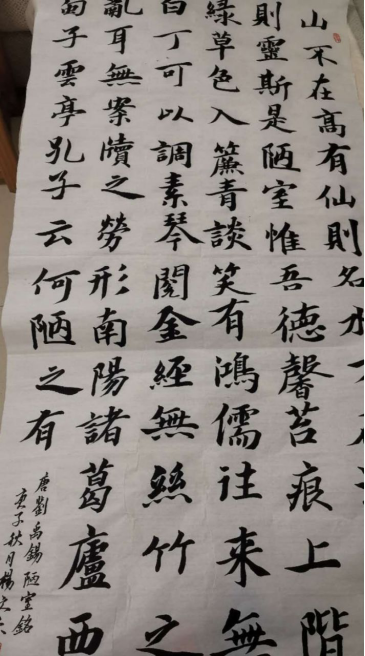 山不在高有仙則名水
則靈斯是陋室惟吾德馨苔痕上階
綠草色入簾青談笑有鴻儒往来無
白丁可以調素琴閱金經無絲竹之
亂耳無案牘之勞形南陽諸葛廬西
子雲亭孔子云何陋之有
唐劉禹錫陋室銘
庚子秋月楊